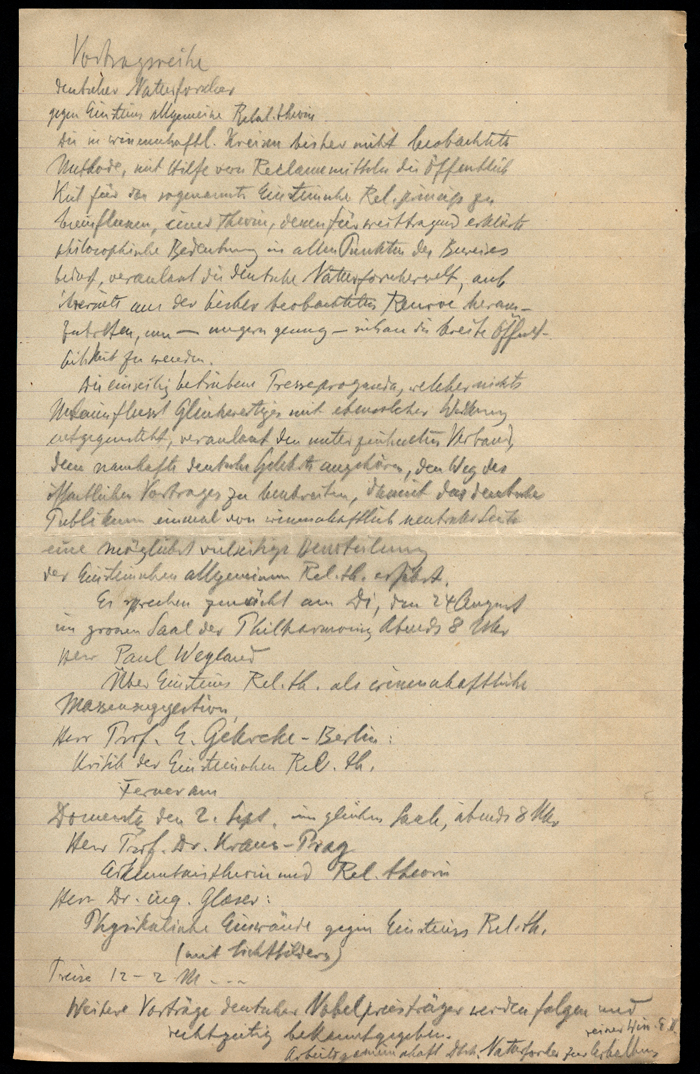 Vortragsreihe
deutscher Naturforscher
gegen Einsteins Allgemeine Relat.theorie
Die in wissenschaftl. Kreisen bisher nicht beobachtete
Methode, mit Hilfe von Reclamemitteln die Öffentlich
keit für das sogenannte Einsteinsche Rel.princip zu
beeinflussen, einer Theorie, deren für weittragend erklärte
philosophische Bedeutung in allen Punkten des Beweises
bedarf, veranlasst die deutsche Naturforscherwelt, auch
ihrerseits aus der bisher beobachteten Reserve heraus-
zutreten, um — ungern genug — sich an die breite Öffent-
lichkeit zu wenden.
Die einseitig betriebene Pressepropaganda, welcher nichts
Gleichwertiges mit ebensolcher Wirkung
entgegensteht, veranlasst den unterzeichneten Verband,
dem namhafte deutsche Gelehrte angehören, den Weg des
öffentlichen Vortrages zu beschreiten, damit das deutsche
Publikum einmal von wissenschaftlich neutraler Seite
eine möglichst vielseitige Beurteilung
der Einsteinschen allgemeinen Rel.th. erfährt.
Es sprechen zunächst am Di, den 24 August
im grossen Saal der Philharmonie, Abends 8 Uhr
Herr Paul Weyland
Über Einsteins Rel.th. als wissenschaftliche
Massensuggestion
Herr Prof. E. Gehrcke-Berlin:
Kritik der Einsteinschen Rel. th.
Ferner am
Donnerstag den 2. Sept. im gleichen Saale, abends 8 Uhr
Herr Prof. Dr. Kraus-Prag
Erkenntnistheorie und Rel. theorie
Herr Dr. ing. Glaser:
Physikalische Einwände gegen Einsteins Rel.th.
(mit Lichtbildern)
Preise 12-2 M ---
Weitere Vorträge deutscher Nobelpreisträger werden folgen und
rechtzeitig bekanntgegeben.
reiner Wiss. E.V.
Arbeitsgemeinschaft Dtsch. Naturforscher zur Erhaltung